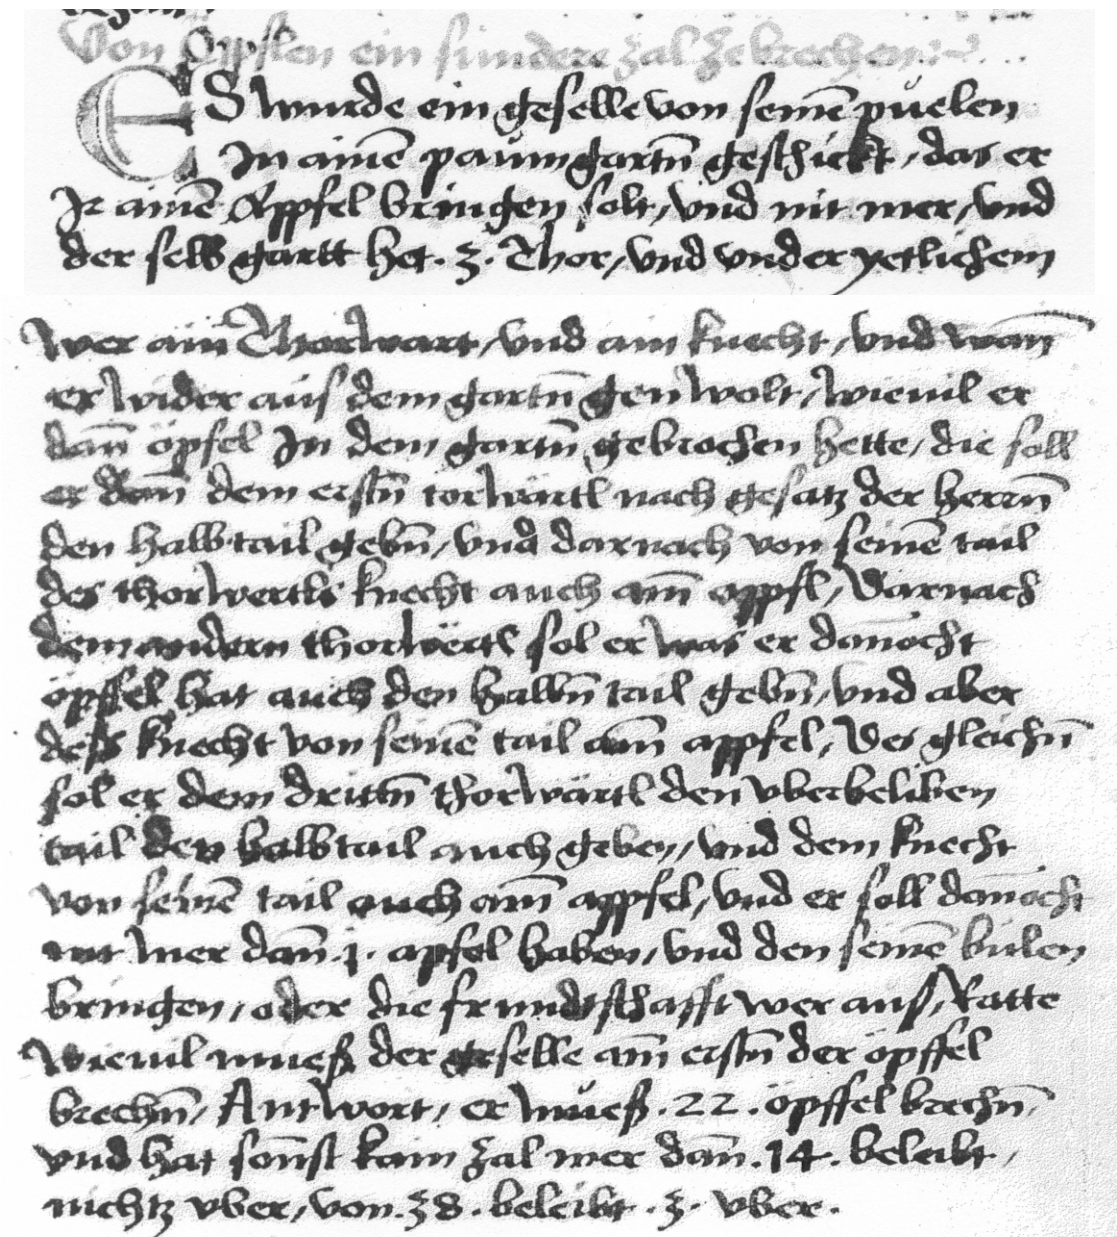 Von Öpflen ein sundere zal zebrechen
ES wurde ein geselle von seinē puelen
In ainē paumgartn̄ geschickt, das er
Ir ainē Appfel bringen solt, vnd nit mer, vnd
der selb gartt het . 3 . Thor, vnd vnder yetlichem
wer ain Thorwart, vnd ain knecht, vnd wan̄
er wider aus dem gartn̄ gen wolt, wieuil er
dan̄ öpfel In dem gartn̄ gebrochen hette, die soll
er dan̄ dem erstn̄ torwärtl nach gesatz der herrn̄
den halbtail gebn̄, vnd darnach von seinē tail
des thorwertls knecht auch ain̄ appfl, Darnach
dem andern thorwërtl sol er was er dan̄ocht
öpffel hat auch den halbn̄ tail gebn̄, vnd aber
dess knecht von seinē tail ain̄ appfel, Des gleichn̄
sol er dem drittn̄ thorwärtl den vberbeliben
tail den halbtail auch geben, vnd dem knecht
von seinē tail auch ain̄ appfel, vnd er soll dan̄och
nit mer dan̄ . 1 . apfel haben, vnd den seinē bulen
bringen, oder die frundtschafft wer aus, Ratte
wieuil muess der geselle am̄ erstn̄ der öpffel
brechn̄, Antwort, er muess . 22 . öpffel brechn̄,
vnd hat son̄st kain zal mer dan̄ . 14 . beleibt,
nichtz vber, von . 38 . beleibt . 3 . vber .